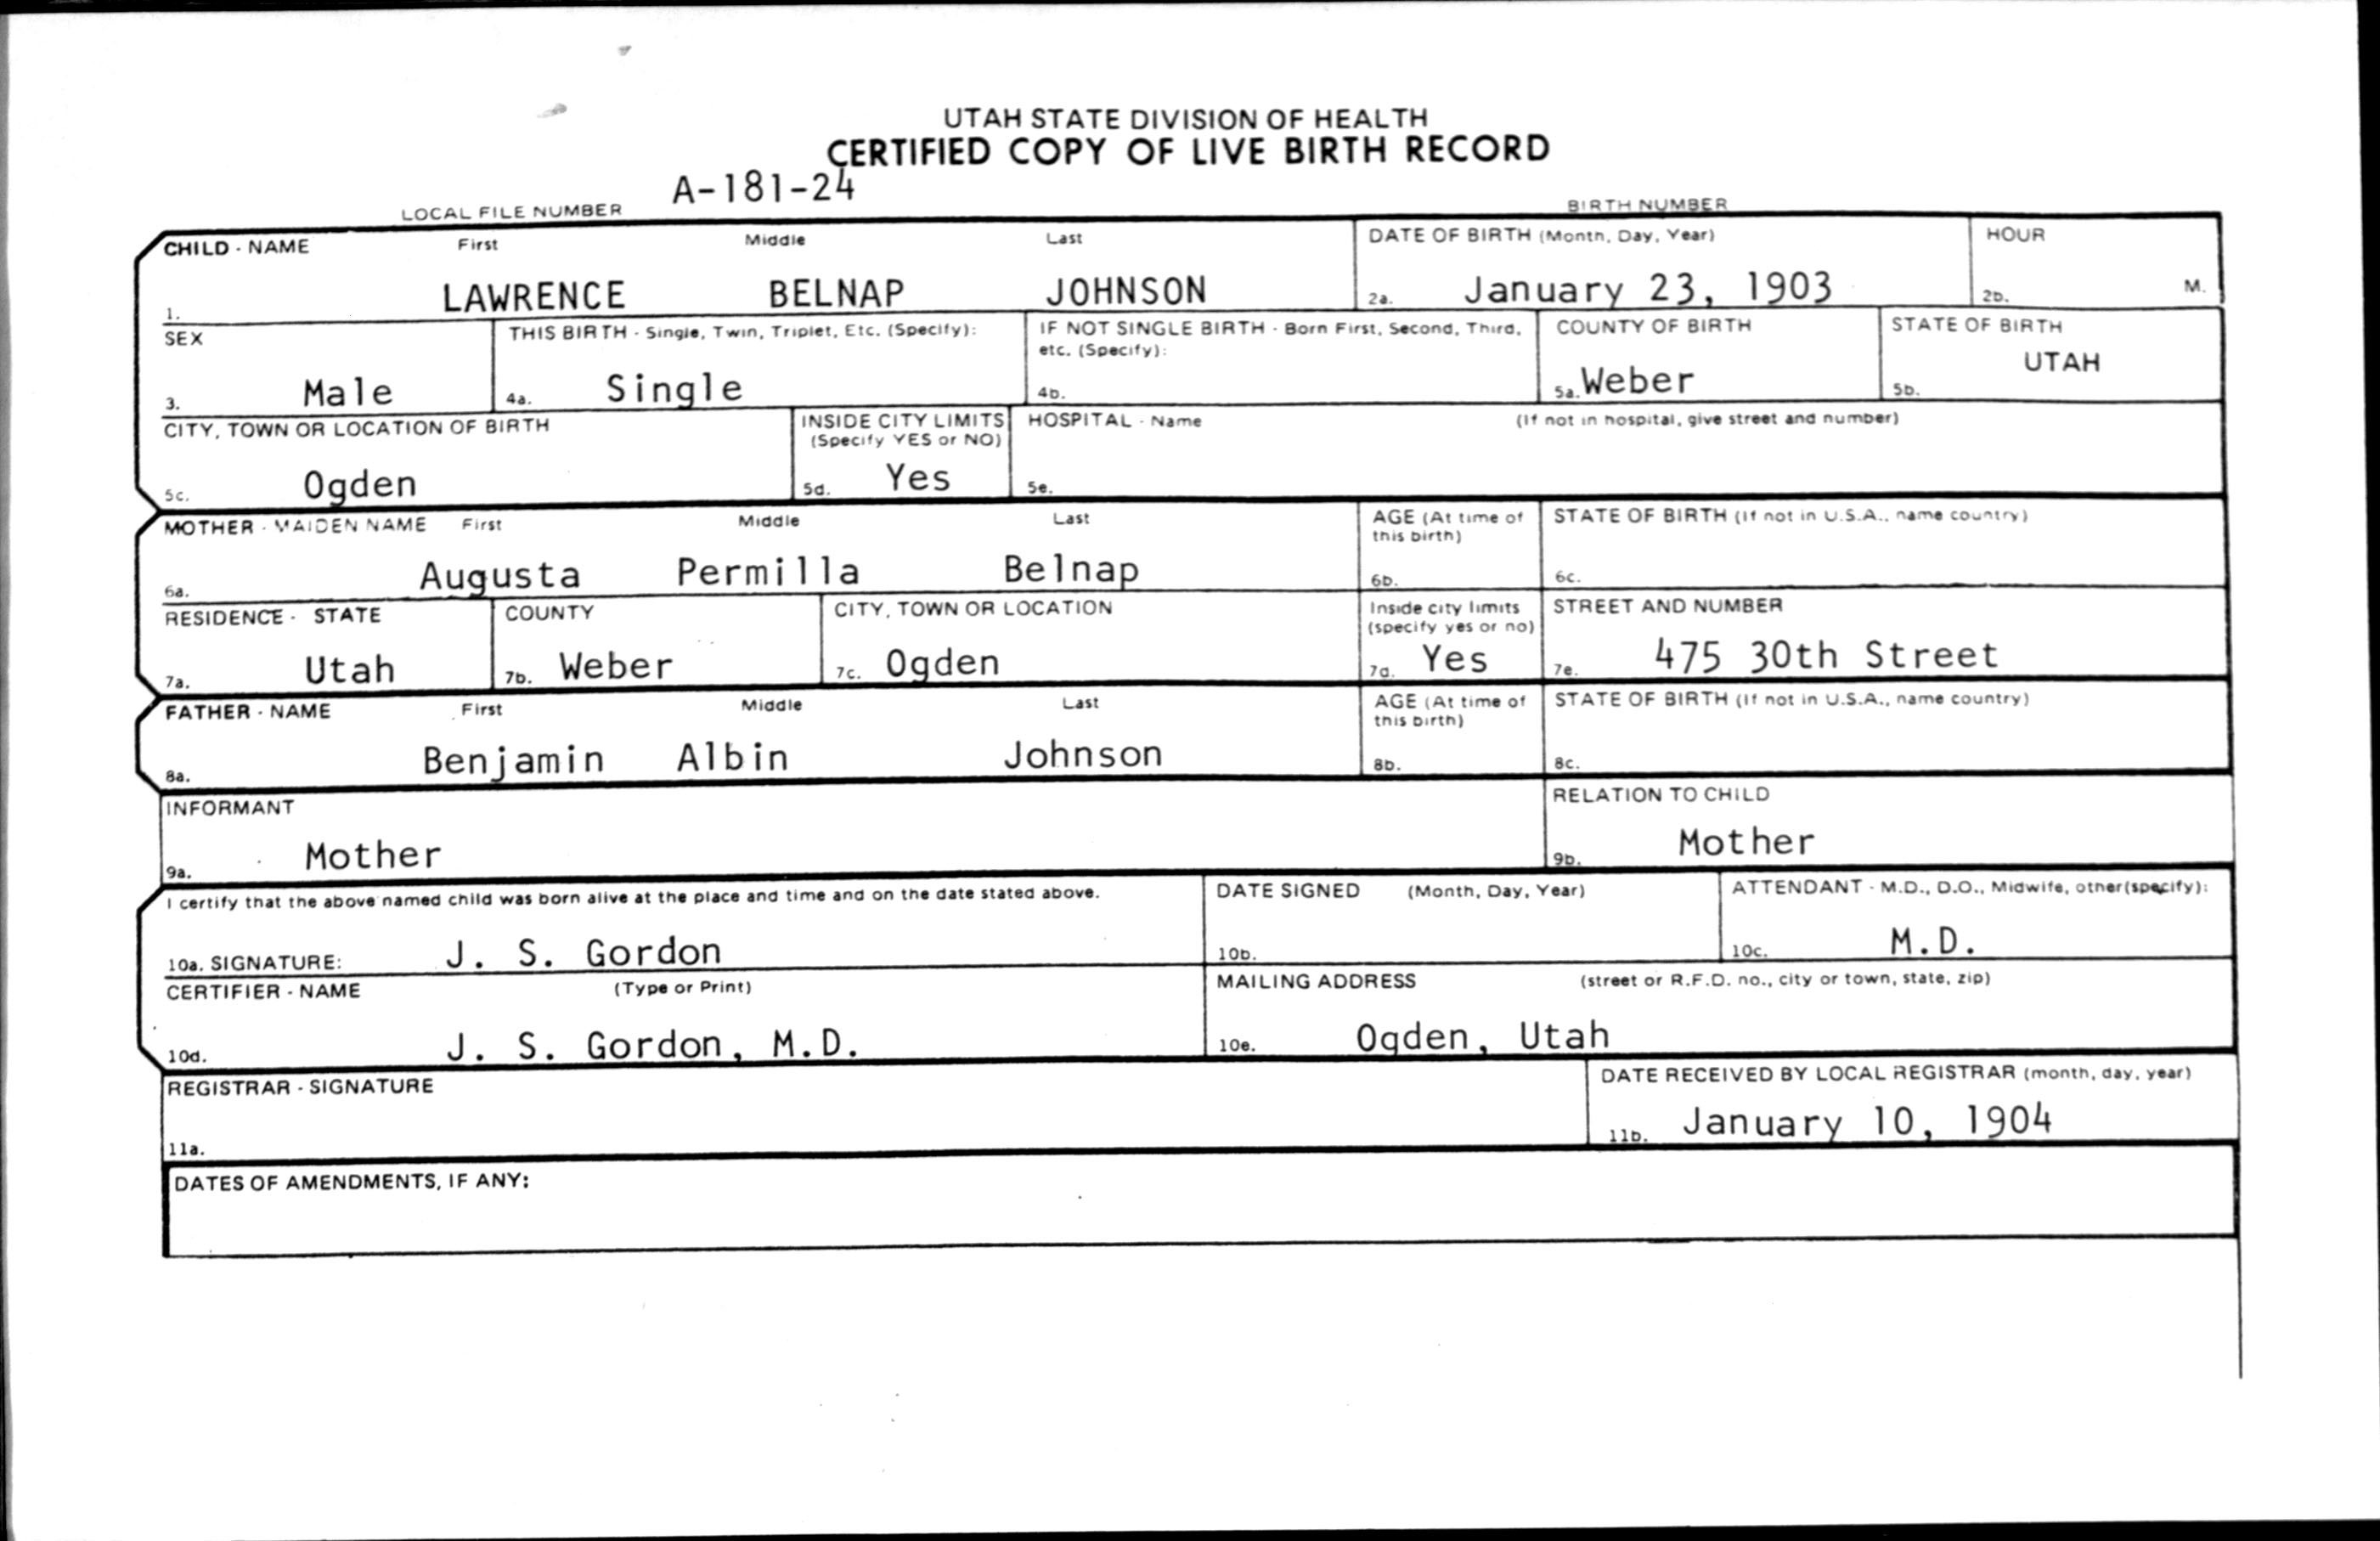 UTAH STATE DIVISION OF HEALTH
CERTIFIED COPY OF LIVE BIRTH RECORD
LOCAL FILE NUMBER A-181-24 BIRTH NUMBER
CHILD - NAME First Middle Last DATE OF BIRTH (Month, Day, Year) HOUR
1. LAWRENCE BELNAP JOHNSON 2a. January 23, 1903 2b. M.
SEX THIS BIRTH - Single, Twin, Triplet, Etc. (Specify): IF NOT SINGLE BIRTH - Born First, Second, Third, etc. (Specify): COUNTY OF BIRTH STATE OF BIRTH
3. Male 4a. Single 4b. 5a. Weber 5b. UTAH
CITY, TOWN OR LOCATION OF BIRTH INSIDE CITY LIMITS (Specify YES or NO) HOSPITAL - Name (If not in hospital, give street and number)
5c. Ogden 5d. Yes 5e.
MOTHER - MAIDEN NAME First Middle Last AGE (At time of this birth) STATE OF BIRTH (If not in U.S.A., name country)
6a. Augusta Permilla Belnap 6b. 6c.
RESIDENCE - STATE COUNTY CITY, TOWN OR LOCATION Inside city limits (specify yes or no) STREET AND NUMBER
7a. Utah 7b. Weber 7c. Ogden 7d. Yes 7e. 475 30th Street
FATHER - NAME First Middle Last AGE (At time of this birth) STATE OF BIRTH (If not in U.S.A., name country)
8a. Benjamin Albin Johnson 8b. 8c.
INFORMANT RELATION TO CHILD
9a. Mother 9b. Mother
I certify that the above named child was born alive at the place and time and on the date stated above. DATE SIGNED (Month, Day, Year) ATTENDANT - M.D., D.O., Midwife, other(specify):
10a. SIGNATURE: J. S. Gordon 10b. 10c. M.D.
CERTIFIER - NAME (Type or Print) MAILING ADDRESS (street or R.F.D. no., city or town, state, zip)
10d. J. S. Gordon, M.D. 10e. Ogden, Utah
REGISTRAR - SIGNATURE DATE RECEIVED BY LOCAL REGISTRAR (month, day, year)
11a. 11b. January 10, 1904
DATES OF AMENDMENTS, IF ANY: